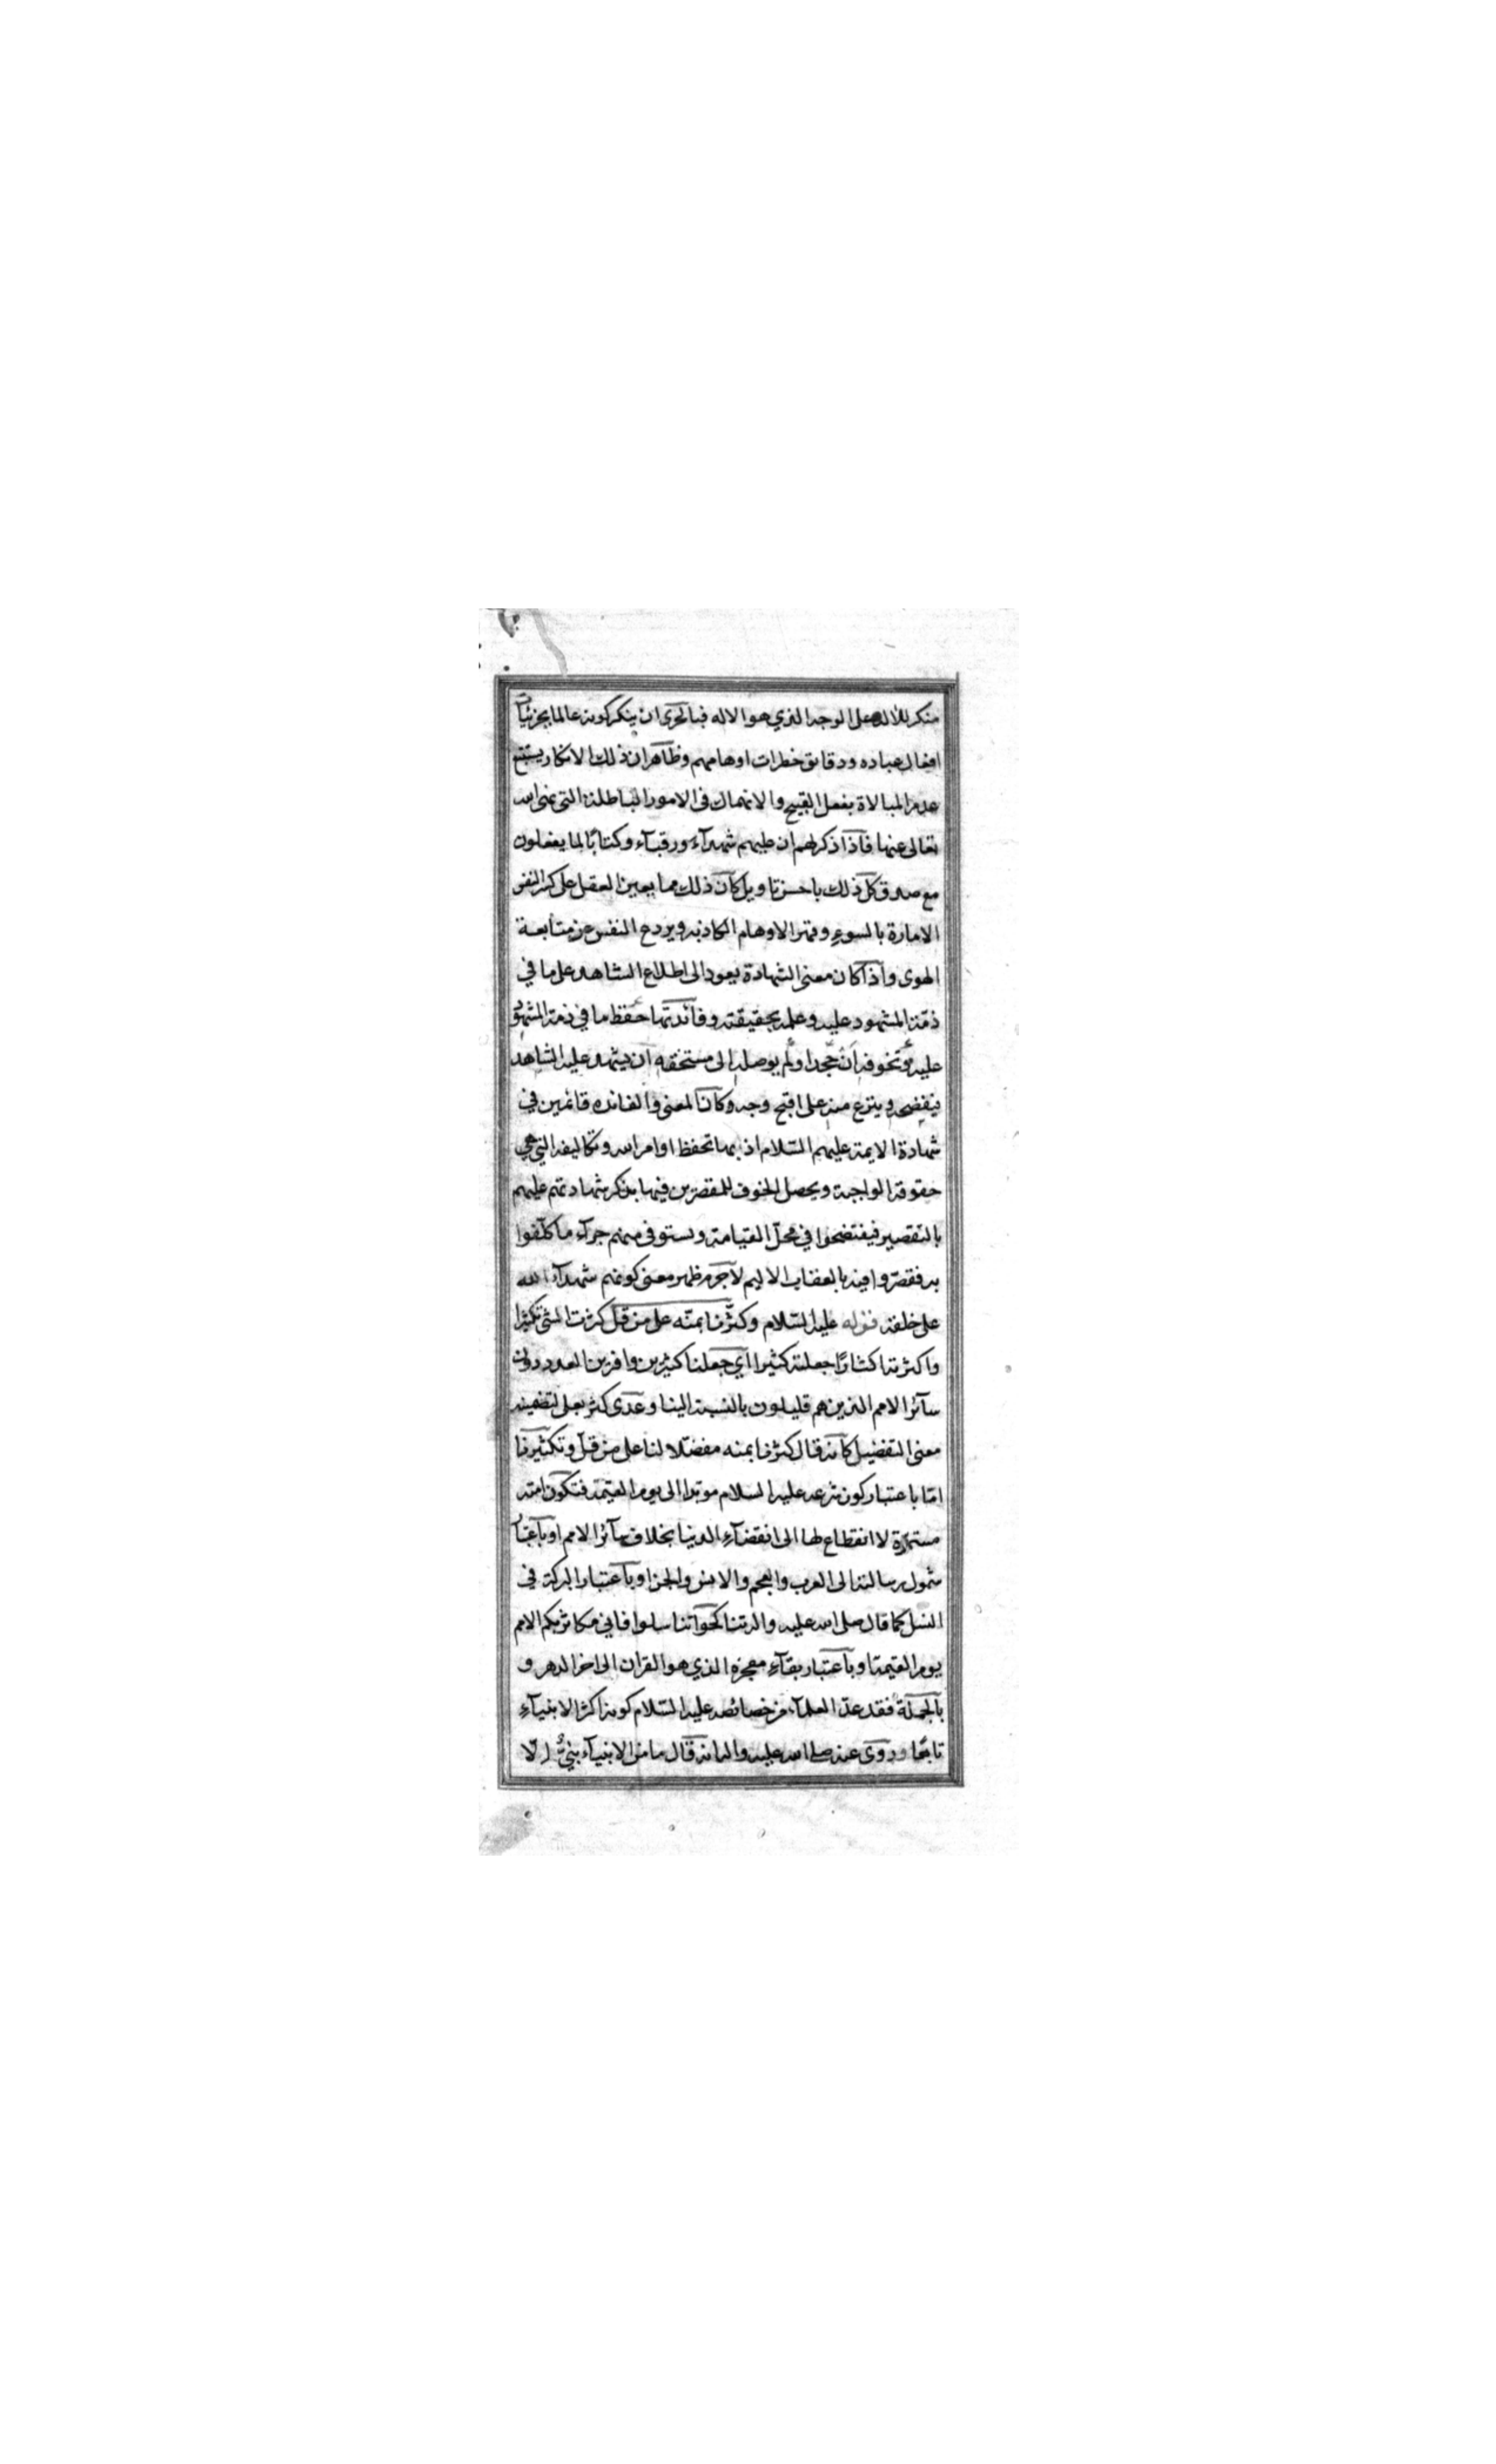 منكر للاله على الوجه الذي هو الاله فبالحرى ان ينكر كونه عالما بجزئيات
افعال عباده ودقايق خطرات اوهامهم وظاهر ان ذلك الانكار يستتبع
عدم المبالاة بفعل القبيح والانهماك فى الامور الباطلة التى نهى الله
تعالى عنها فاذا ذكر لهم ان عليهم شهدآء ورقبآء وكتابًا لما يفعلون
مع صدق كل ذلك باحسن تاويل كان ذلك مما يعين العقل على كسر النفس
الامارة بالسوء وقهر الاوهام الكاذبه ويردع النفس عن متابعة
الهوى واذا كان معنى الشهادة يعود الى اطلاع الشاهد على ما في
ذمة المشهود عليه وعلمه بحقيقته وفائدتها حفظ ما في ذمة المشهود
عليه وتخوفه ان جحد او لم يوصله الى مستحقه ان يشهد عليه الشاهد
فيفضحه وينتزع منه على اقبح وجه وكان المعنى والفائده قائمين في
شهادة الايمة عليهم السّلام اذ بها تحفظ اوامر الله وتكاليفه التي هي
حقوقه الواجبة ويحصل الخوف للمقصرين فيها بذكر شهادتهم عليهم
بالتقصير فيفتضحوا في محلّ القيامة ويستوفى منهم جزآء ما كلّفوا
به فقصرّوا فيه بالعقاب الاليم لاجرم ظهر معنى كونهم شهدآء الله
على خلقه قوله عليه السّلام وكثّرنا بمنّه على من قلّ كثرت الشئ تكثيرا
واكثرته اكثارًا جعلته كثيرا اي جعلنا كثيرين وافرين العدد دون
سآئر الامم الذين هم قليلون بالنسبة الينا وعدى كثر بعلى لتضمينه
معنى التفضيل كانه قال كثرنا بمنه مفضّلا لنا على من قلّ وتكثيرنا
امّا باعتبار كون شرعه عليه السلام موبدا الى يوم القيمة فتكون امته
مستمرّة لا انقطاع لها الى انقضآء الدنيا بخلاف سآئر الامم او باعتبار
شمول رسالته الى العرب والعجم والانس والجن او باعتبار البركة في
النسل كما قال صلى الله عليه واله تناكحوا تناسلوا فاني مكاثر بكم الامم
يوم القيمة او باعتبار بقآء معجزه الذي هو القران الى اخر الدهر و
بالجملة فقد عدّ العلمآء من خصائصه عليه السّلام كونه اكثر الانبيآء
تابعًا وروى عنه صلى الله عليه واله انه قال ما من الانبيآء نبيّ الّا